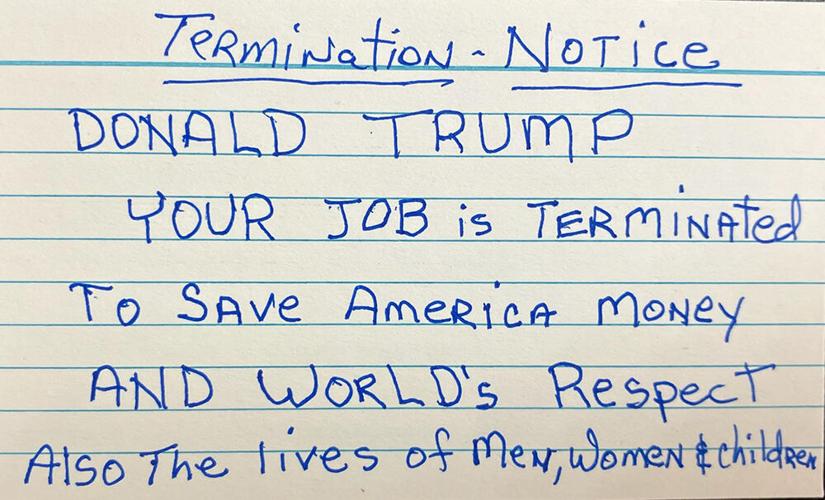 Termination - Notice
DONALD TRUMP
YOUR JOB is TERMiNAted
To SAVe AmeRiCA MoNey
AND WORLD's Respect
Also The lives of MeN, WomeN & childReN